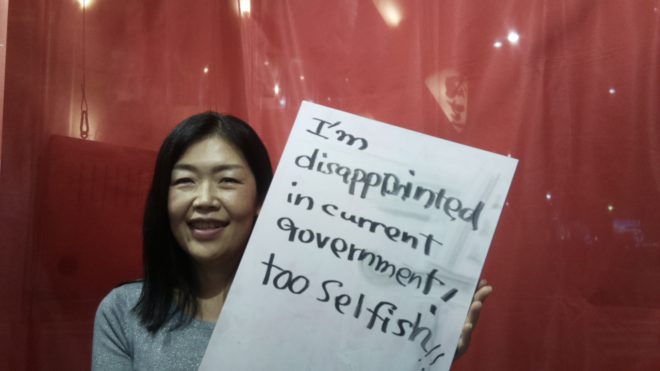 I'm
disappointed
in current
government,
too selfish!!